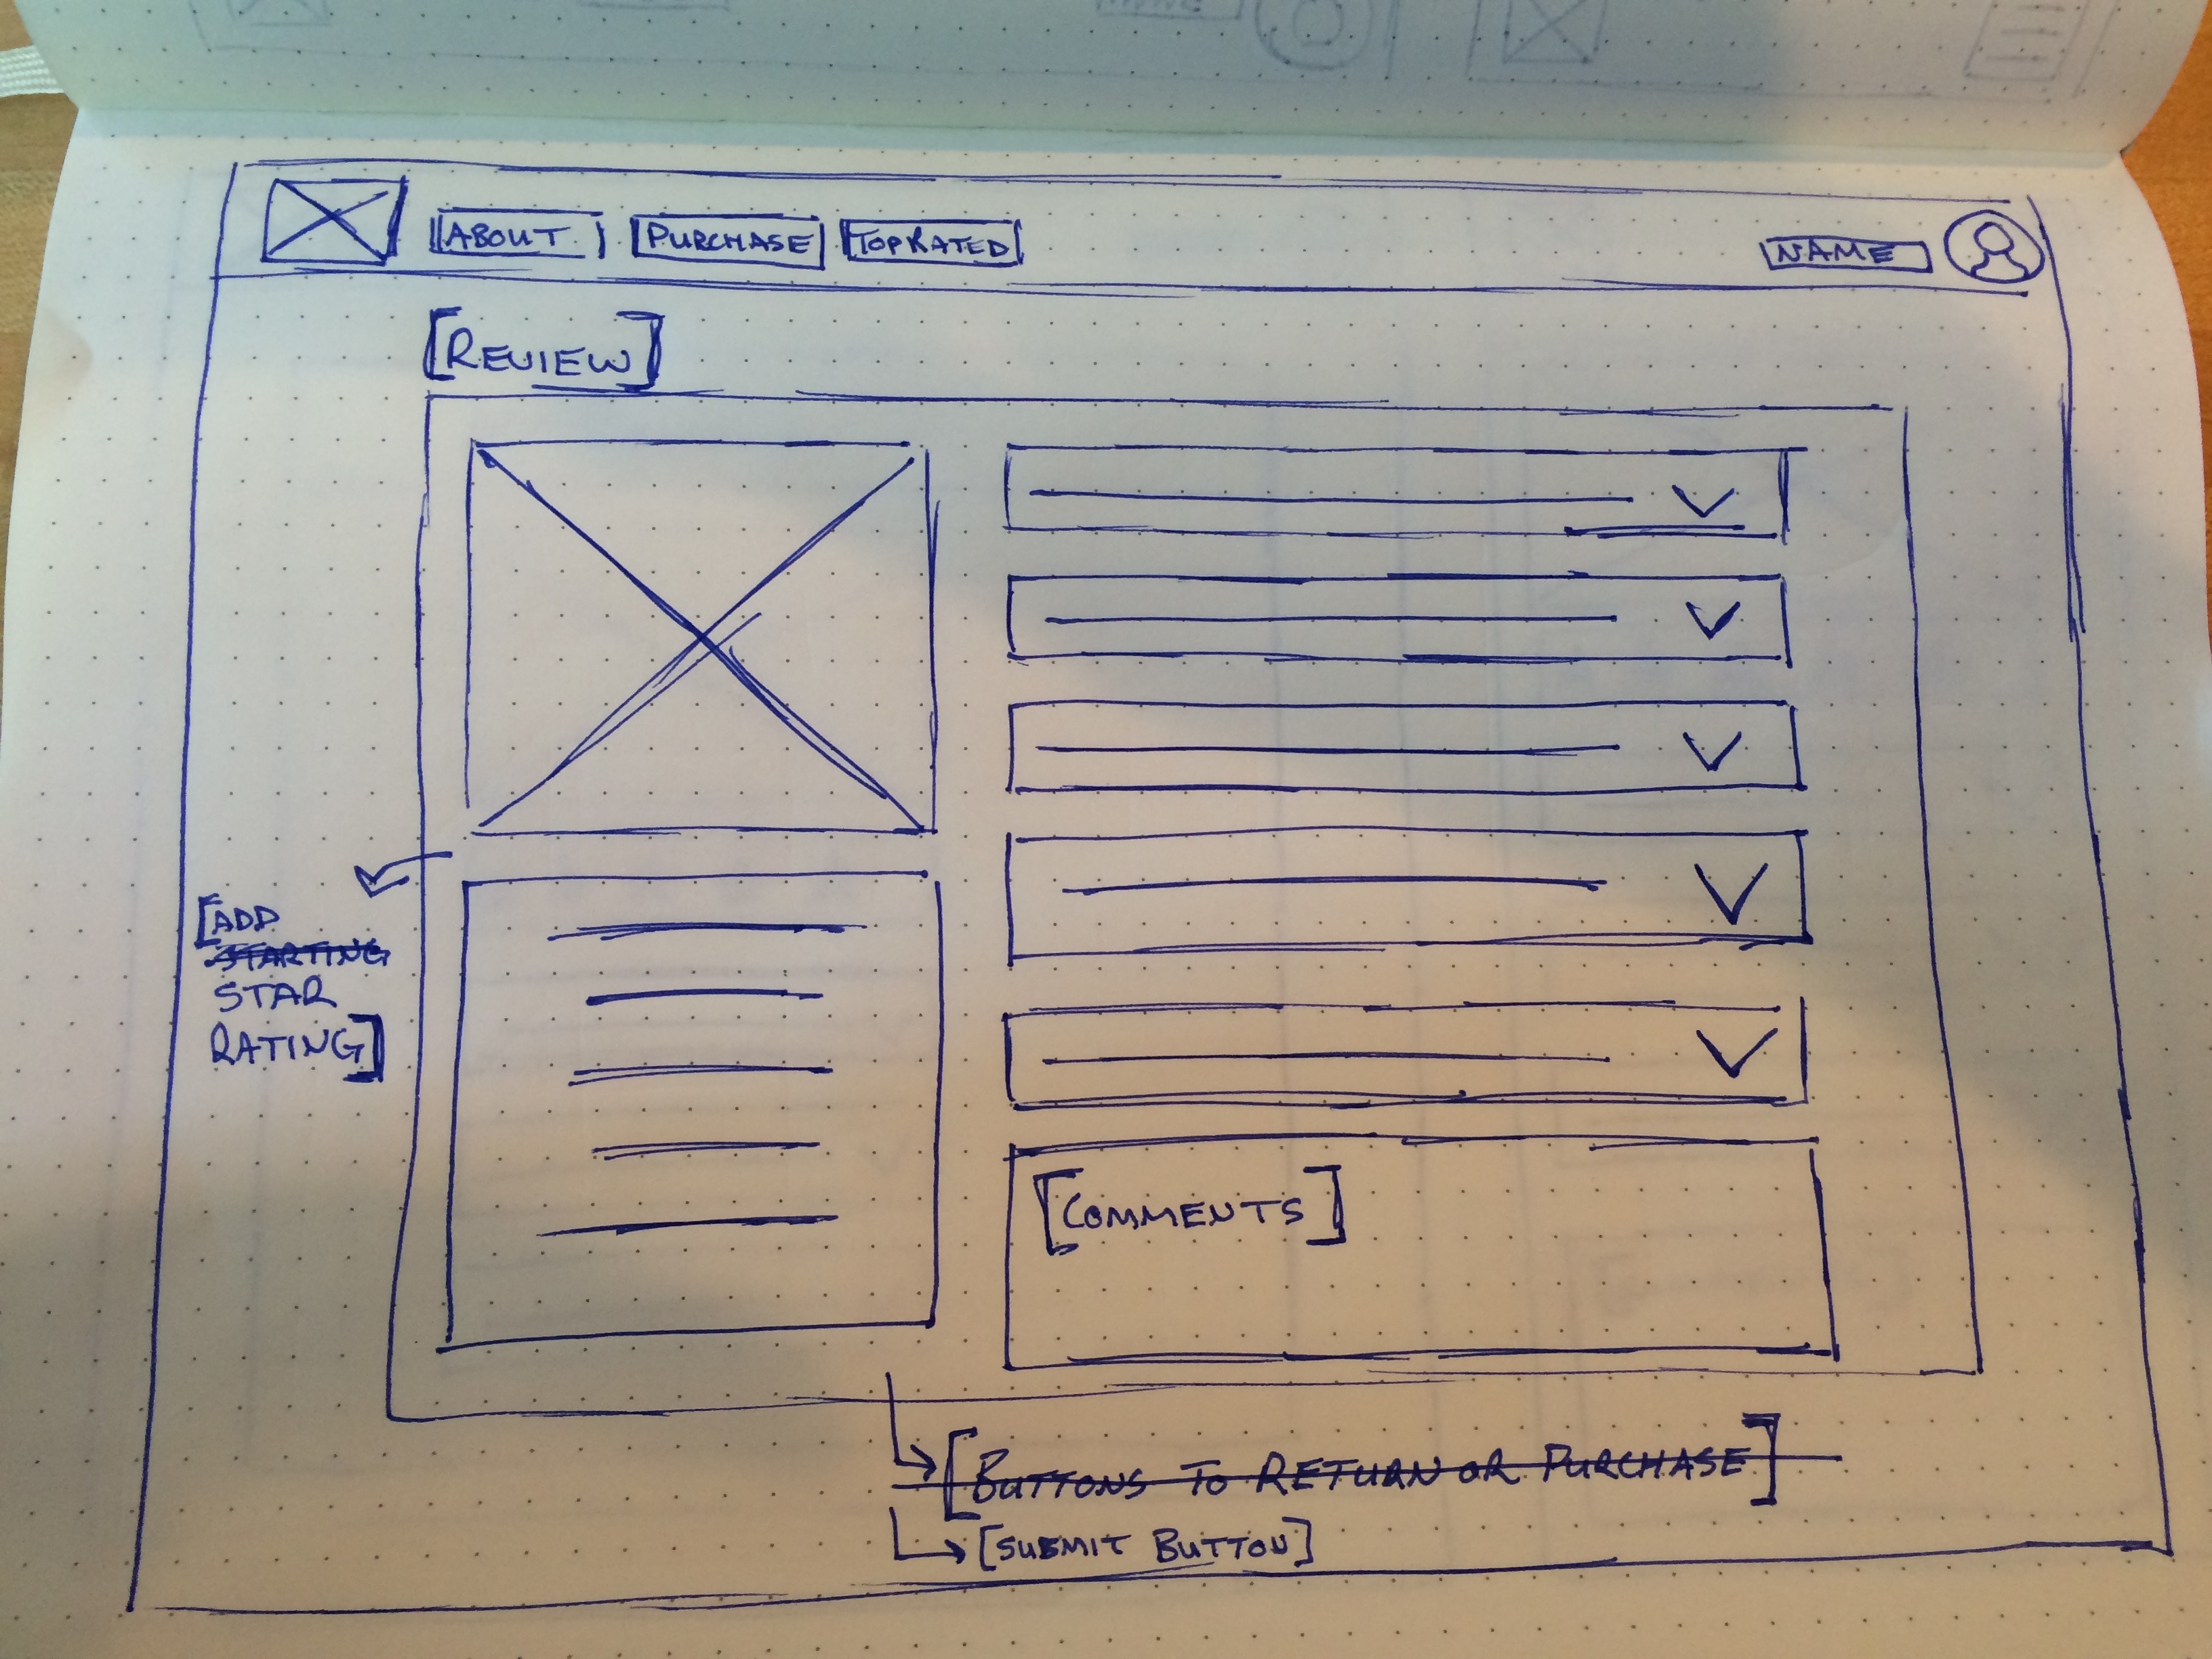 ABOUT PURCHASE TOP RATED NAME
[REVIEW]
[ADD
STARTING
STAR
RATING]
[COMMENTS]
[BUTTONS TO RETURN OR PURCHASE]
[SUBMIT BUTTON]